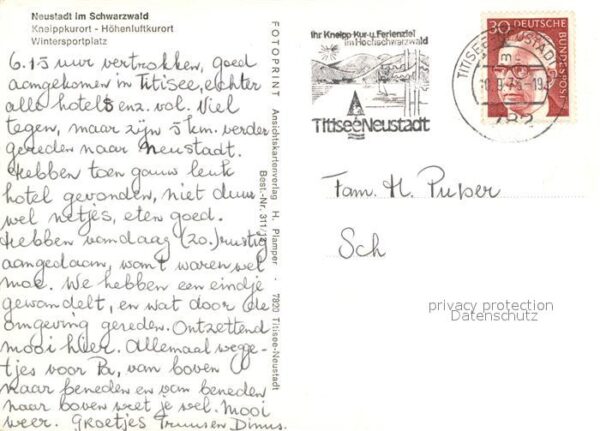 Neustadt im Schwarzwald
Kneippkurort - Höhenluftkurort
Wintersportplatz
6.15 uur vertrokken, goed
aangekomen in Titisee, echter
alle hotels enz. vol. Viel
tegen, maar zijn 5 km. verder
gereden naar Neustadt.
Hebben toen gauw leuk
hotel gevonden, niet duur
wel netjes, eten goed.
Hebben vandaag (20.) rustig
aangedaan, want waren wel
moe. We hebben een eindje
gewandelt, en wat door de
omgeving gereden. Ontzettend
mooi hier. Allemaal wegge-
tjes voor Pa, van boven
naar beneden en van beneden
naar boven weet je wel. Mooi
weer. Groetjes Truus en Dinus.
FOTOPRINT Ansichtskartenverlag H. Plamper · 7820 Titisee-Neustadt
Best.-Nr. 311/
Ihr Kneipp-Kur-u. Ferienziel
im Hochschwarzwald
Titisee Neustadt
TITISEE-NEUSTADT
30 DEUTSCHE
BUNDESPOST
Fam. H. Puper
Sch
privacy protection
Datenschutz